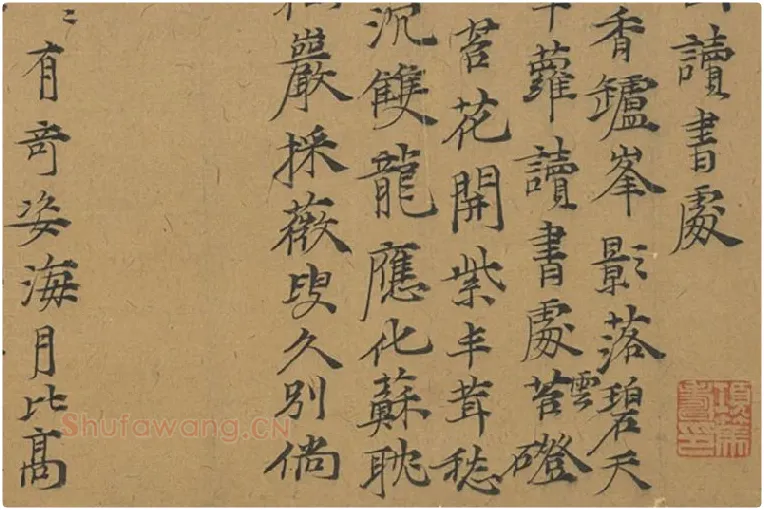 讀書處
香鑪峯影落碧天
蘿讀書處苔雲磴
苔花開紫丰茸
沉雙龍應化蘇耽
巖採薇叟久別倘
有奇姿海月比髙
項篤壽印
Shufawang.CN